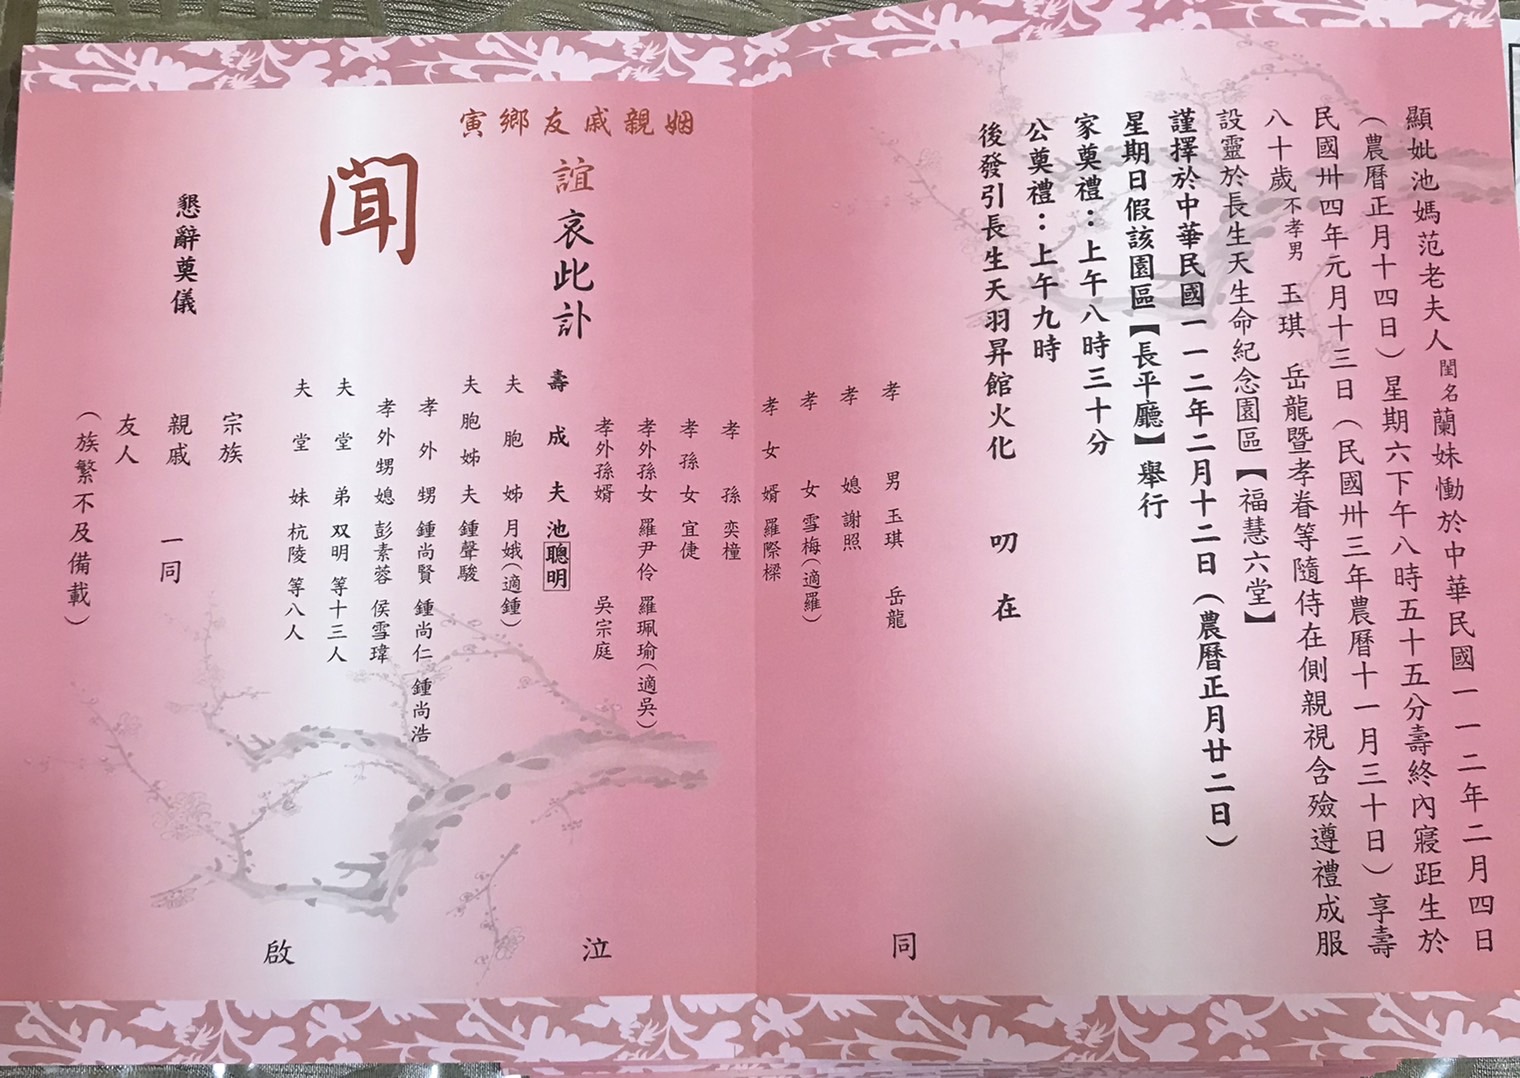 顯妣池媽范老夫人閨名蘭妹慟於中華民國一一二年二月四日
（農曆正月十四日）星期六下午八時五十五分壽終內寢距生於
民國卅四年元月十三日（民國卅三年農曆十一月三十日）享壽
八十歲不孝男 玉琪 岳龍暨孝眷等隨侍在側親視含殮遵禮成服
設靈於長生天生命紀念園區【福慧六堂】
謹擇於中華民國一一二年二月十二日（農曆正月廿二日）
星期日假該園區【長平廳】舉行
家奠禮：上午八時三十分
公奠禮：上午九時
後發引長生天羽昇館火化 叨在
孝男 玉琪 岳龍
同
孝媳 謝照
孝女 雪梅（適羅）
孝女婿 羅際樑
孝孫 奕橦
孝孫女 宜倢
孝外孫女 羅尹伶 羅珮瑜（適吳）
孝外孫婿 吳宗庭
泣
姻親戚友鄉寅
誼哀此訃
壽成夫 池聰明
夫胞姊 月娥（適鍾）
夫胞姊夫 鍾聲駿
孝外甥 鍾尚賢 鍾尚仁 鍾尚浩
孝外甥媳 彭素蓉 侯雪瑋
聞
夫堂弟 双明 等十三人
夫堂妹 杭陵 等八人
啟
宗族
懇辭奠儀
親戚 一同
友人
（族繁不及備載）